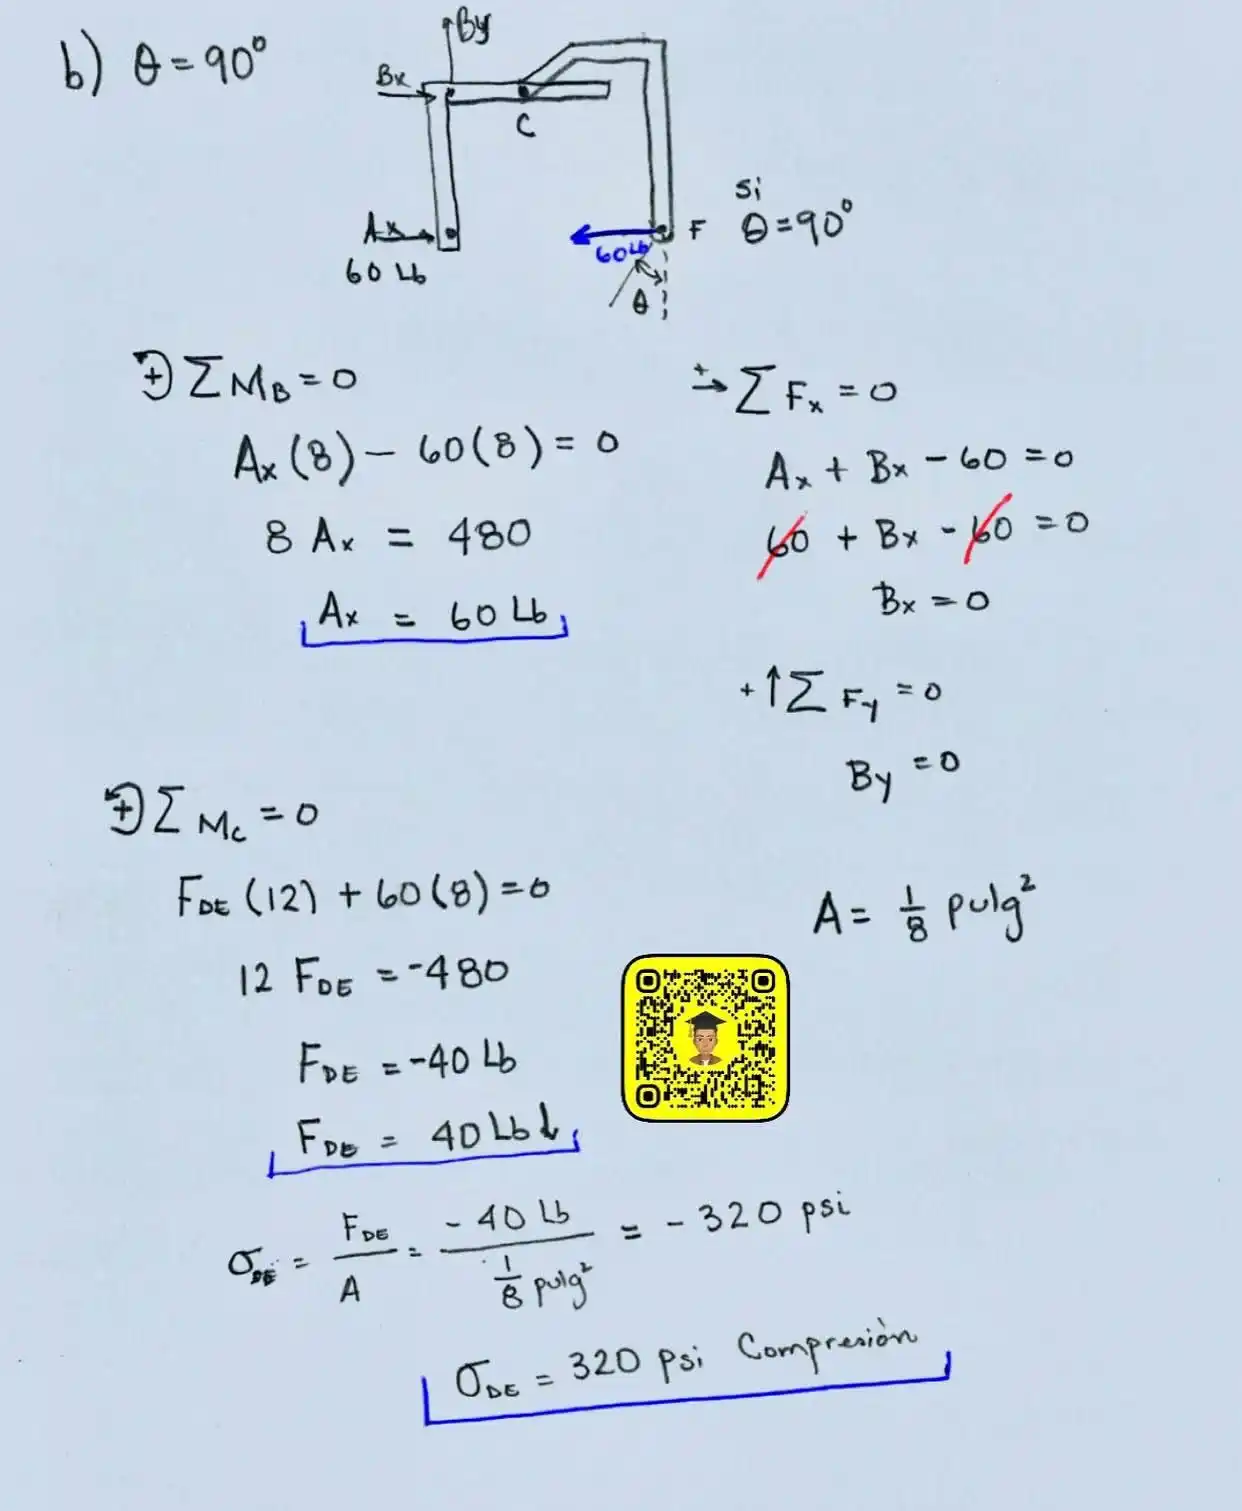 b) θ = 90°
By
Bx
C
Ax
60 Lb
60Lb
F
θ
si
θ = 90°
+ ΣM_B = 0
Ax (8) - 60(8) = 0
8 Ax = 480
Ax = 60 Lb
+→ ΣFx = 0
Ax + Bx - 60 = 0
60 + Bx - 60 = 0
Bx = 0
+↑ΣFy = 0
By = 0
+ ΣMc = 0
F_DE (12) + 60(8) = 0
12 F_DE = -480
F_DE = -40 Lb
F_DE = 40 Lb ↓
A = 1/8 pulg²
σ_DE = F_DE/A = -40 Lb / 1/8 pulg² = -320 psi
σ_DE = 320 psi Compresión